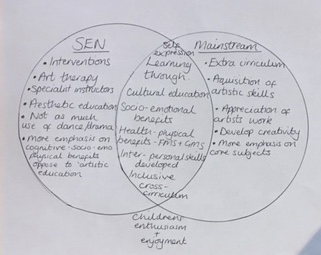 SEN
• Interventions
• Art therapy
• Specialist instructors
• Aesthetic education
• Not as much
use of dance/drama
• more emphasis on
cognitive-socio-emo
physical benefits
oppose to artistic
education
Self
expression
Learning
through
Cultural education
Socio-emotional
benefits
Health-physical
benefits - FMS + GMS
Inter-personal skills
developed
Inclusive
cross-
curriculum
Mainstream
• Extra curriculum
• Aquisition of
artistic skills
• Appreciation of
artists work
• Develop creativity
• More emphasis on
core subjects
Childrens
enthusiasm
+
enjoyment